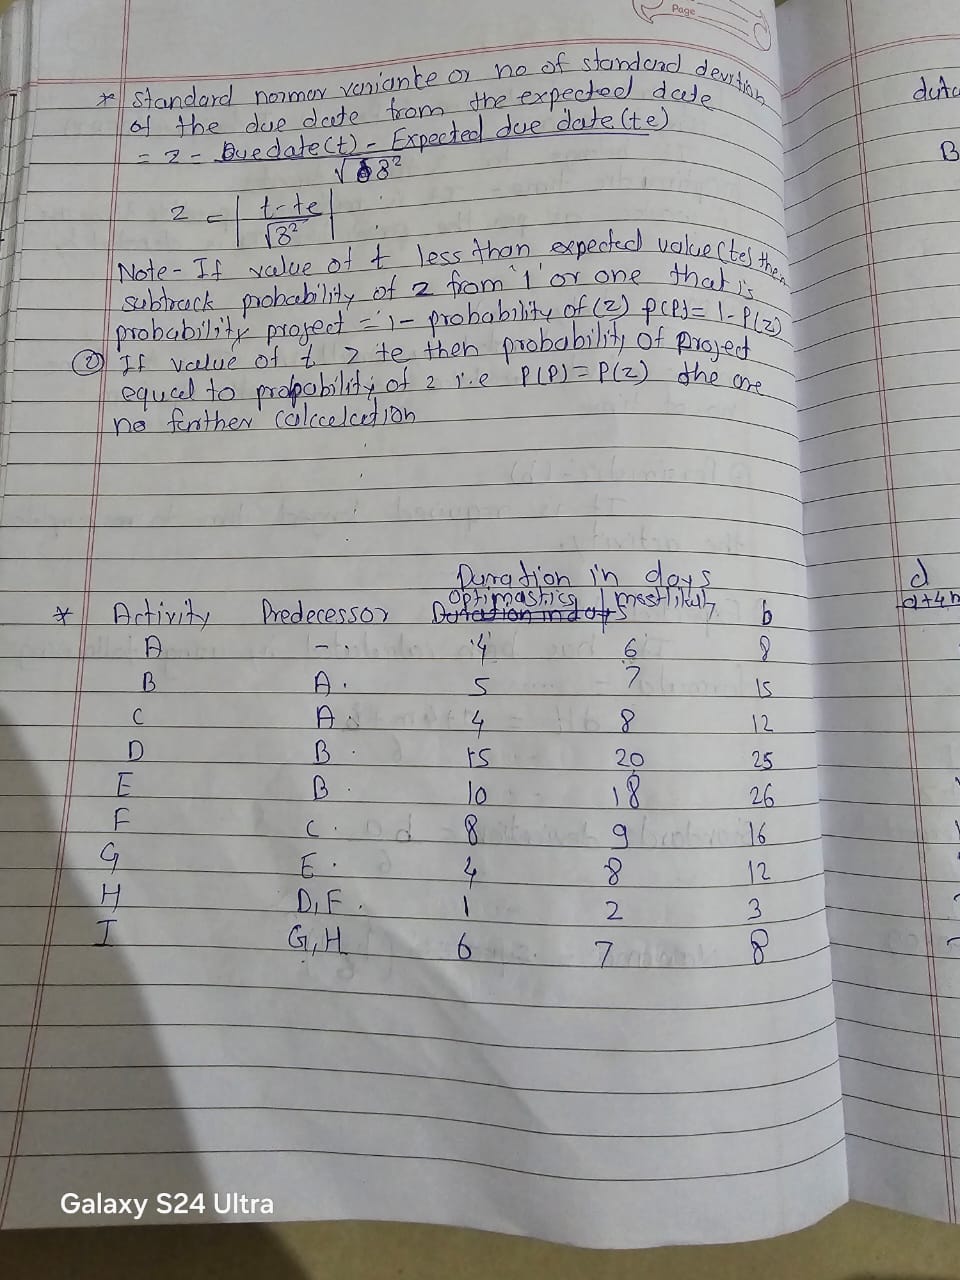 Page
* Standard normar varianke or no of standard devition
of the due date from the expected date
= z = Duedate(t) - Expected due date (te)
√ 3²
z = | t-te
√3² |
Note - If value of t less than expected value(te) then
subtrack probability of z from '1' or one that is
probability project = 1 - probability of (z) p(P)= 1-P(z)
② If value of t > te then probability of project
equal to probability of z i.e P(P) = P(z) the are
no further calccelcetion
Duration in days
* Activity Predecessor optimastics | mostlikely b
A - 4 6 8
B A. 5 7 15
C A 4 8 12
D B. 15 20 25
E B. 10 18 26
F C. 8 9 16
G E. 4 8 12
H D,F. 1 2 3
I G,H 6 7 8
B
d
Galaxy S24 Ultra